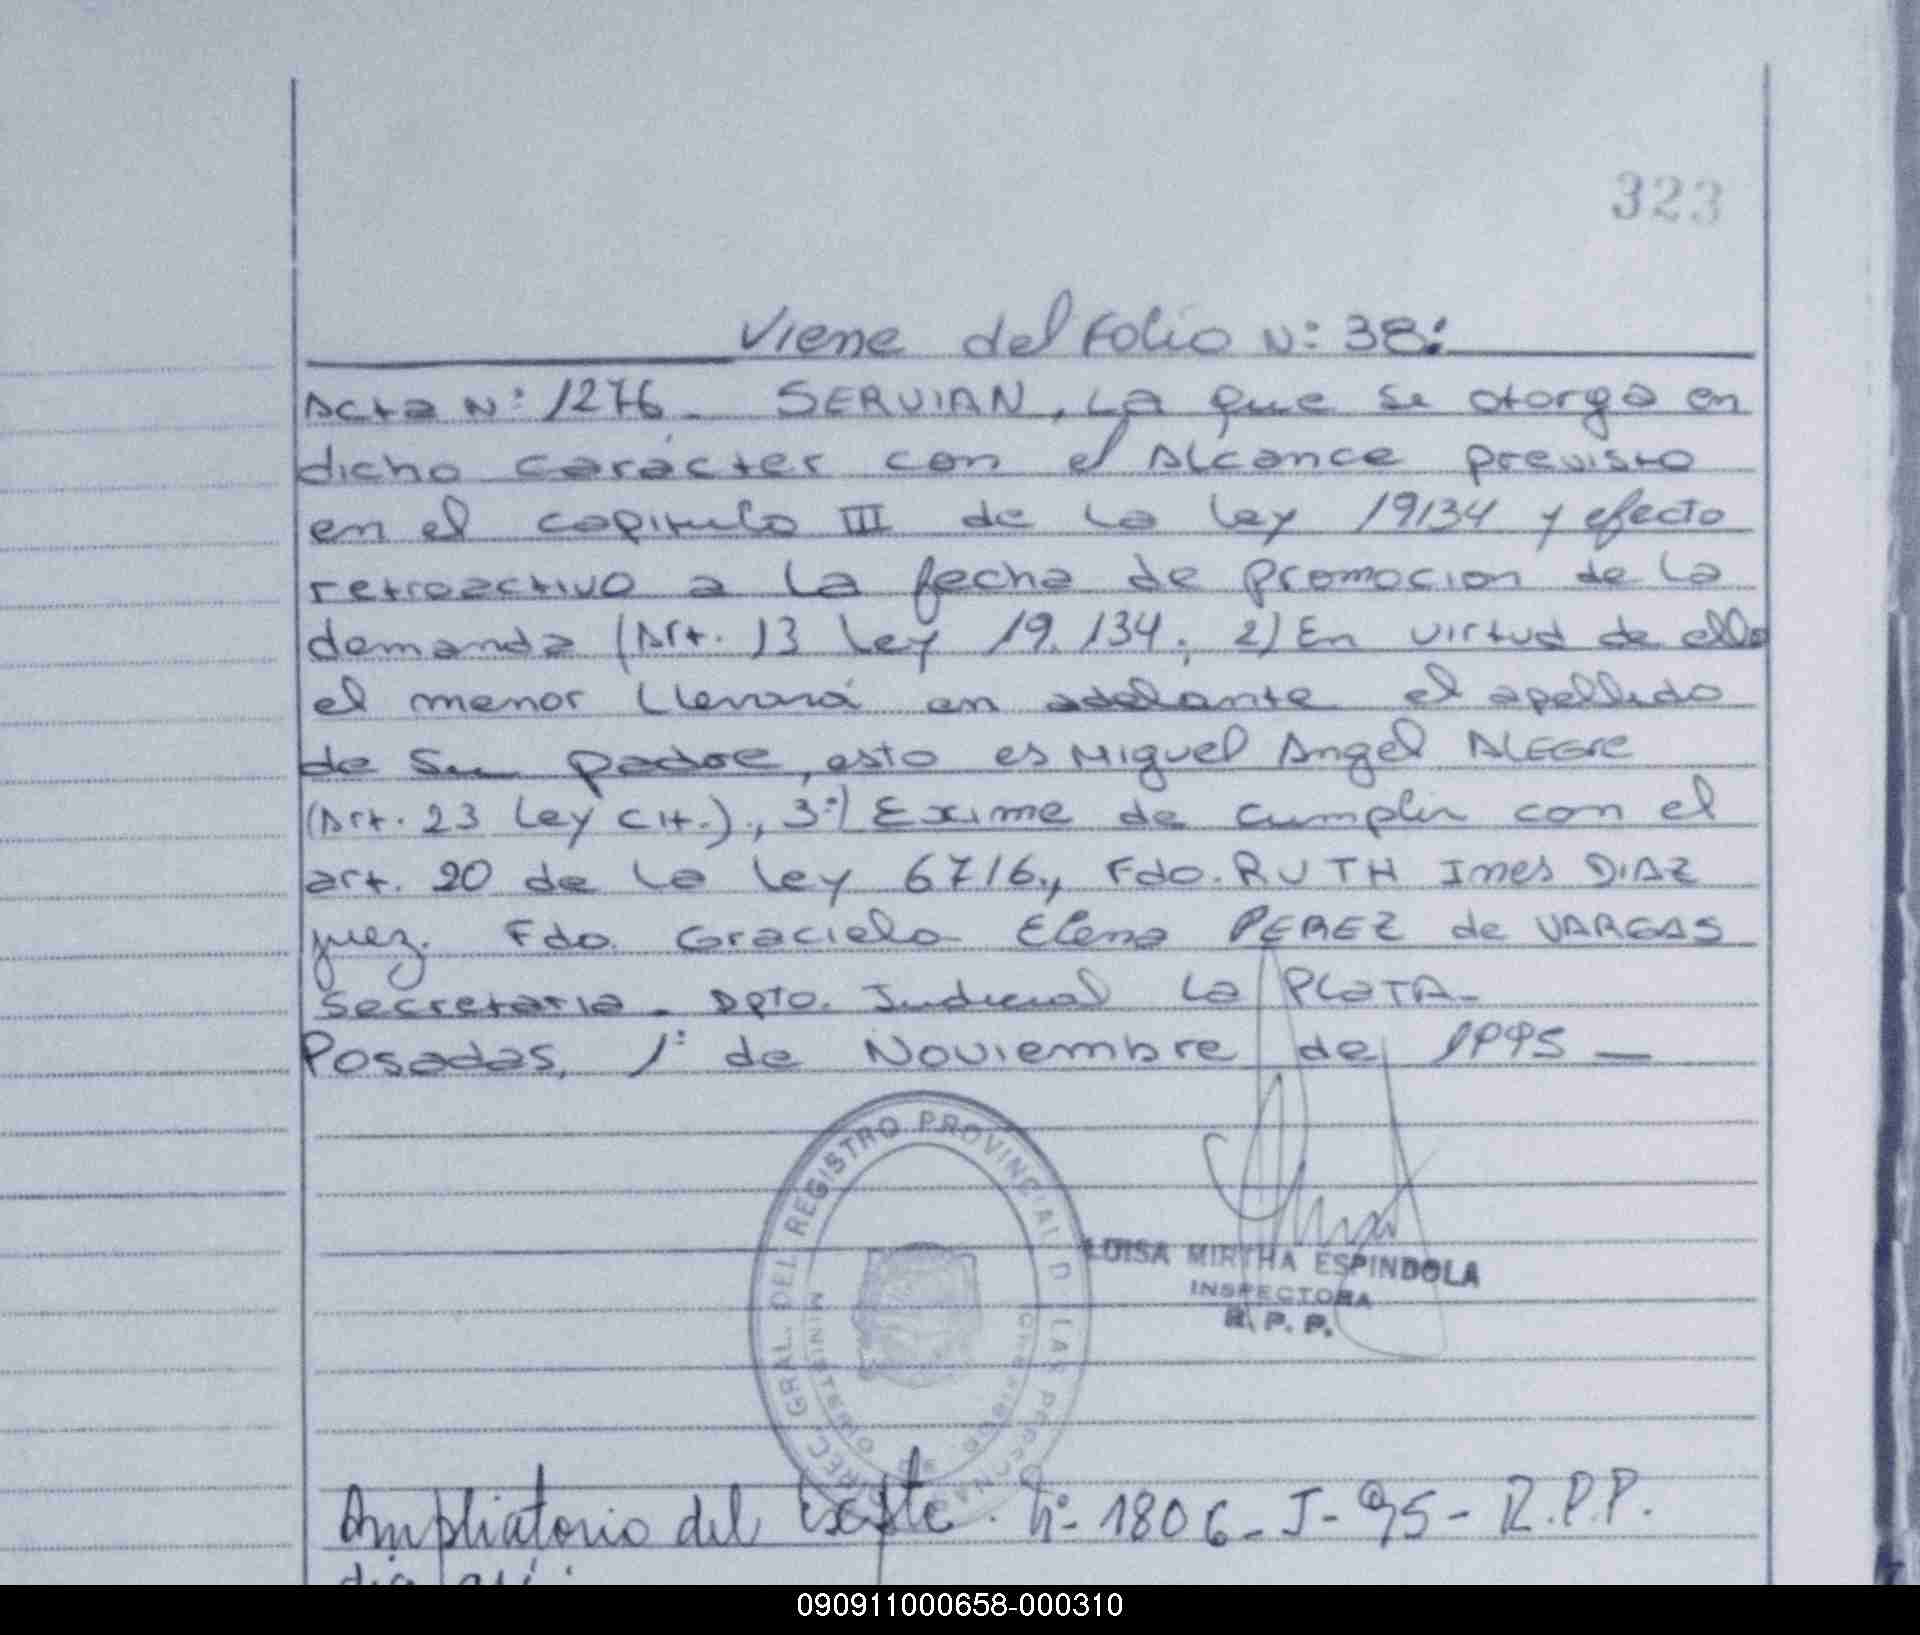 323
Viene del Folio N: 38:
Acta N: 1276. SERVIAN, La que se otorga en
dicho carácter con el Alcance previsto
en el capitulo III de La Ley 19134 y efecto
retroactivo a La fecha de promocion de La
demanda (Art. 13 Ley 19.134; 2) En virtud de ello
el menor Llevará en adelante el apellido
de Su padre, esto es Miguel Angel ALEGre
(Art. 23 Ley cit.)., 3:) Exime de cumplir con el
art. 20 de La Ley 6716., Fdo. RUTH Ines DIAZ
juez. Fdo. Graciela Elena PEREZ de VARGAS
Secretaria. Dpto. Judicial La PLATA-
Posadas, 1: de Noviembre de 1995 —
REC. GRAL. DEL REGISTRO PROVINCIAL D LAS PERSONAS
LUISA MIRTHA ESPINDOLA
INSPECTORA
R. P. P.
Ampliatorio del Expte. Nº 1806-J-95-R.P.P.
090911000658-000310